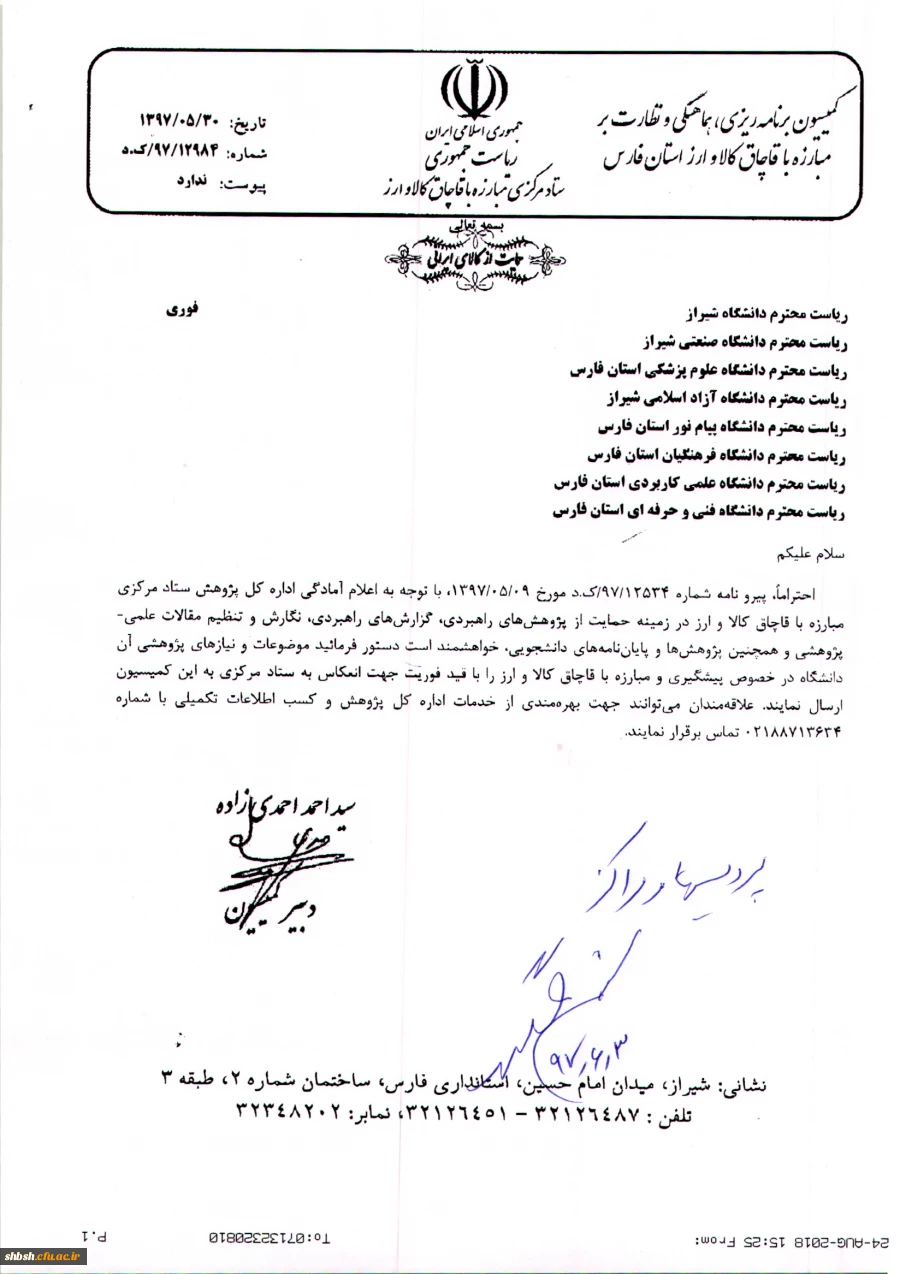 کمیسیون برنامه ریزی، هماهنگی و نظارت بر
مبارزه با قاچاق کالا و ارز استان فارس
جمهوری اسلامی ایران
ریاست جمهوری
ستاد مرکزی مبارزه با قاچاق کالا و ارز
تاریخ: ۱۳۹۷/۰۵/۳۰
شماره: ۹۷/۱۲۹۸۴/ک.د
پیوست: ندارد
بسمه تعالی
حمایت از کالای ایرانی
فوری
ریاست محترم دانشگاه شیراز
ریاست محترم دانشگاه صنعتی شیراز
ریاست محترم دانشگاه علوم پزشکی استان فارس
ریاست محترم دانشگاه آزاد اسلامی شیراز
ریاست محترم دانشگاه پیام نور استان فارس
ریاست محترم دانشگاه فرهنگیان استان فارس
ریاست محترم دانشگاه علمی کاربردی استان فارس
ریاست محترم دانشگاه فنی و حرفه ای استان فارس
سلام علیکم
احتراماً، پیرو نامه شماره ۹۷/۱۲۵۳۴/ک.د مورخ ۱۳۹۷/۰۵/۰۹، با توجه به اعلام آمادگی اداره کل پژوهش ستاد مرکزی
مبارزه با قاچاق کالا و ارز در زمینه حمایت از پژوهش‌های راهبردی، گزارش‌های راهبردی، نگارش و تنظیم مقالات علمی-
پژوهشی و همچنین پژوهش‌ها و پایان‌نامه‌های دانشجویی، خواهشمند است دستور فرمائید موضوعات و نیازهای پژوهشی آن
دانشگاه در خصوص پیشگیری و مبارزه با قاچاق کالا و ارز را با قید فوریت جهت انعکاس به ستاد مرکزی به این کمیسیون
ارسال نمایند. علاقه‌مندان می‌توانند جهت بهره‌مندی از خدمات اداره کل پژوهش و کسب اطلاعات تکمیلی با شماره
۰۲۱۸۸۷۱۳۶۳۴ تماس برقرار نمایند.
سید احمد احمدی زاده
دبیر کمیسیون
پردیسها و مراکز
۹۷/۶/۳
نشانی: شیراز، میدان امام حسین، استانداری فارس، ساختمان شماره ۲، طبقه ۳
تلفن : ۳۲۱۲۶٤۸۷ – ۳۲۱۲۶٤۵۱، نمابر: ۳۲۳٤۸۲۰۲
24-AUG-2018 15:25 From:
To:07132320810
P.1
shbsh.cfu.ac.ir